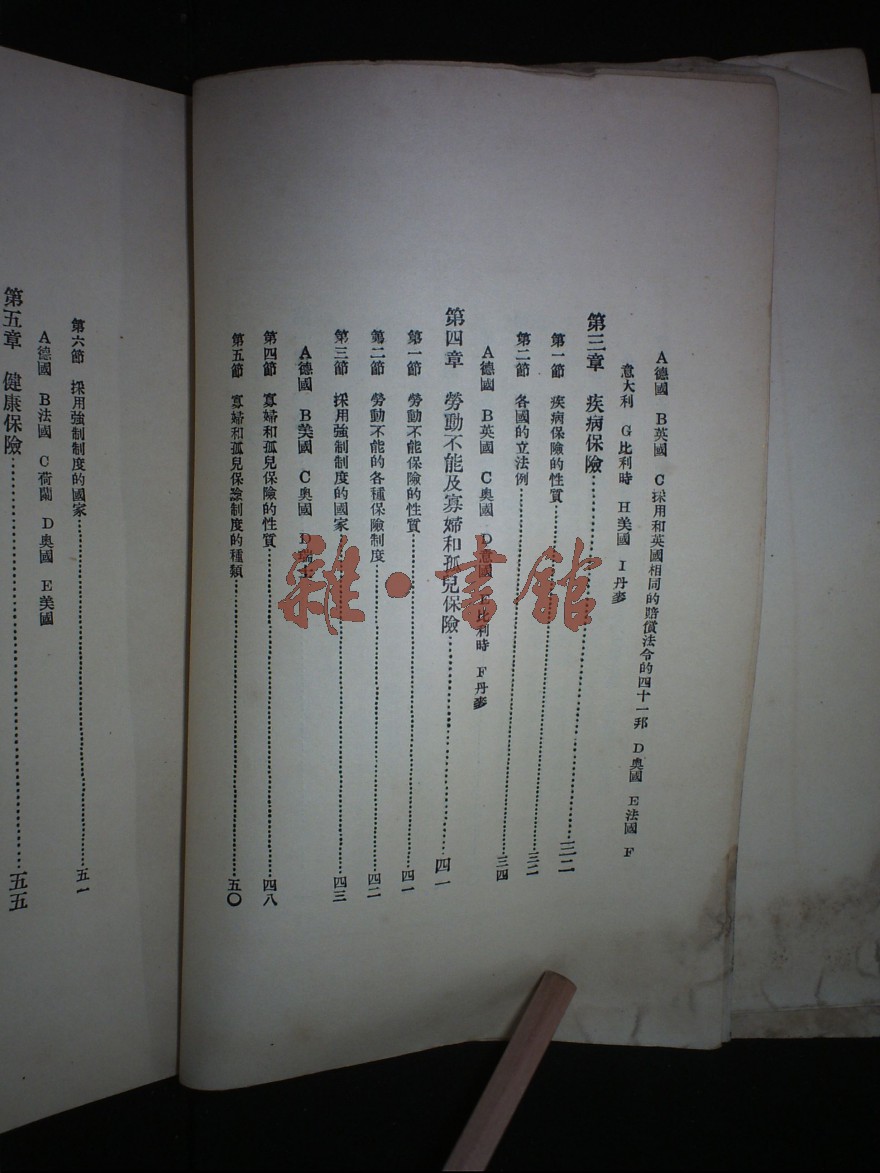 A德國 B英國 C採用和英國相同的賠償法令的四十一邦 D奧國 E法國 F
意大利 G比利時 H美國 I丹麥
第三章 疾病保險……三二
第一節 疾病保險的性質……三二
第二節 各國的立法例……三四
A德國 B英國 C奧國 D意國 E比利時 F丹麥
第四章 勞動不能及寡婦和孤兒保險……四一
第一節 勞動不能保險的性質……四一
第二節 勞動不能的各種保險制度……四二
第三節 採用強制制度的國家……四三
A德國 B美國 C奧國 D瑞士
第四節 寡婦和孤兒保險的性質……四八
第五節 寡婦和孤兒保險制度的種類……五〇
第六節 採用強制制度的國家……五一
A德國 B法國 C荷蘭 D奧國 E美國
第五章 健康保險……五五
雜·書館